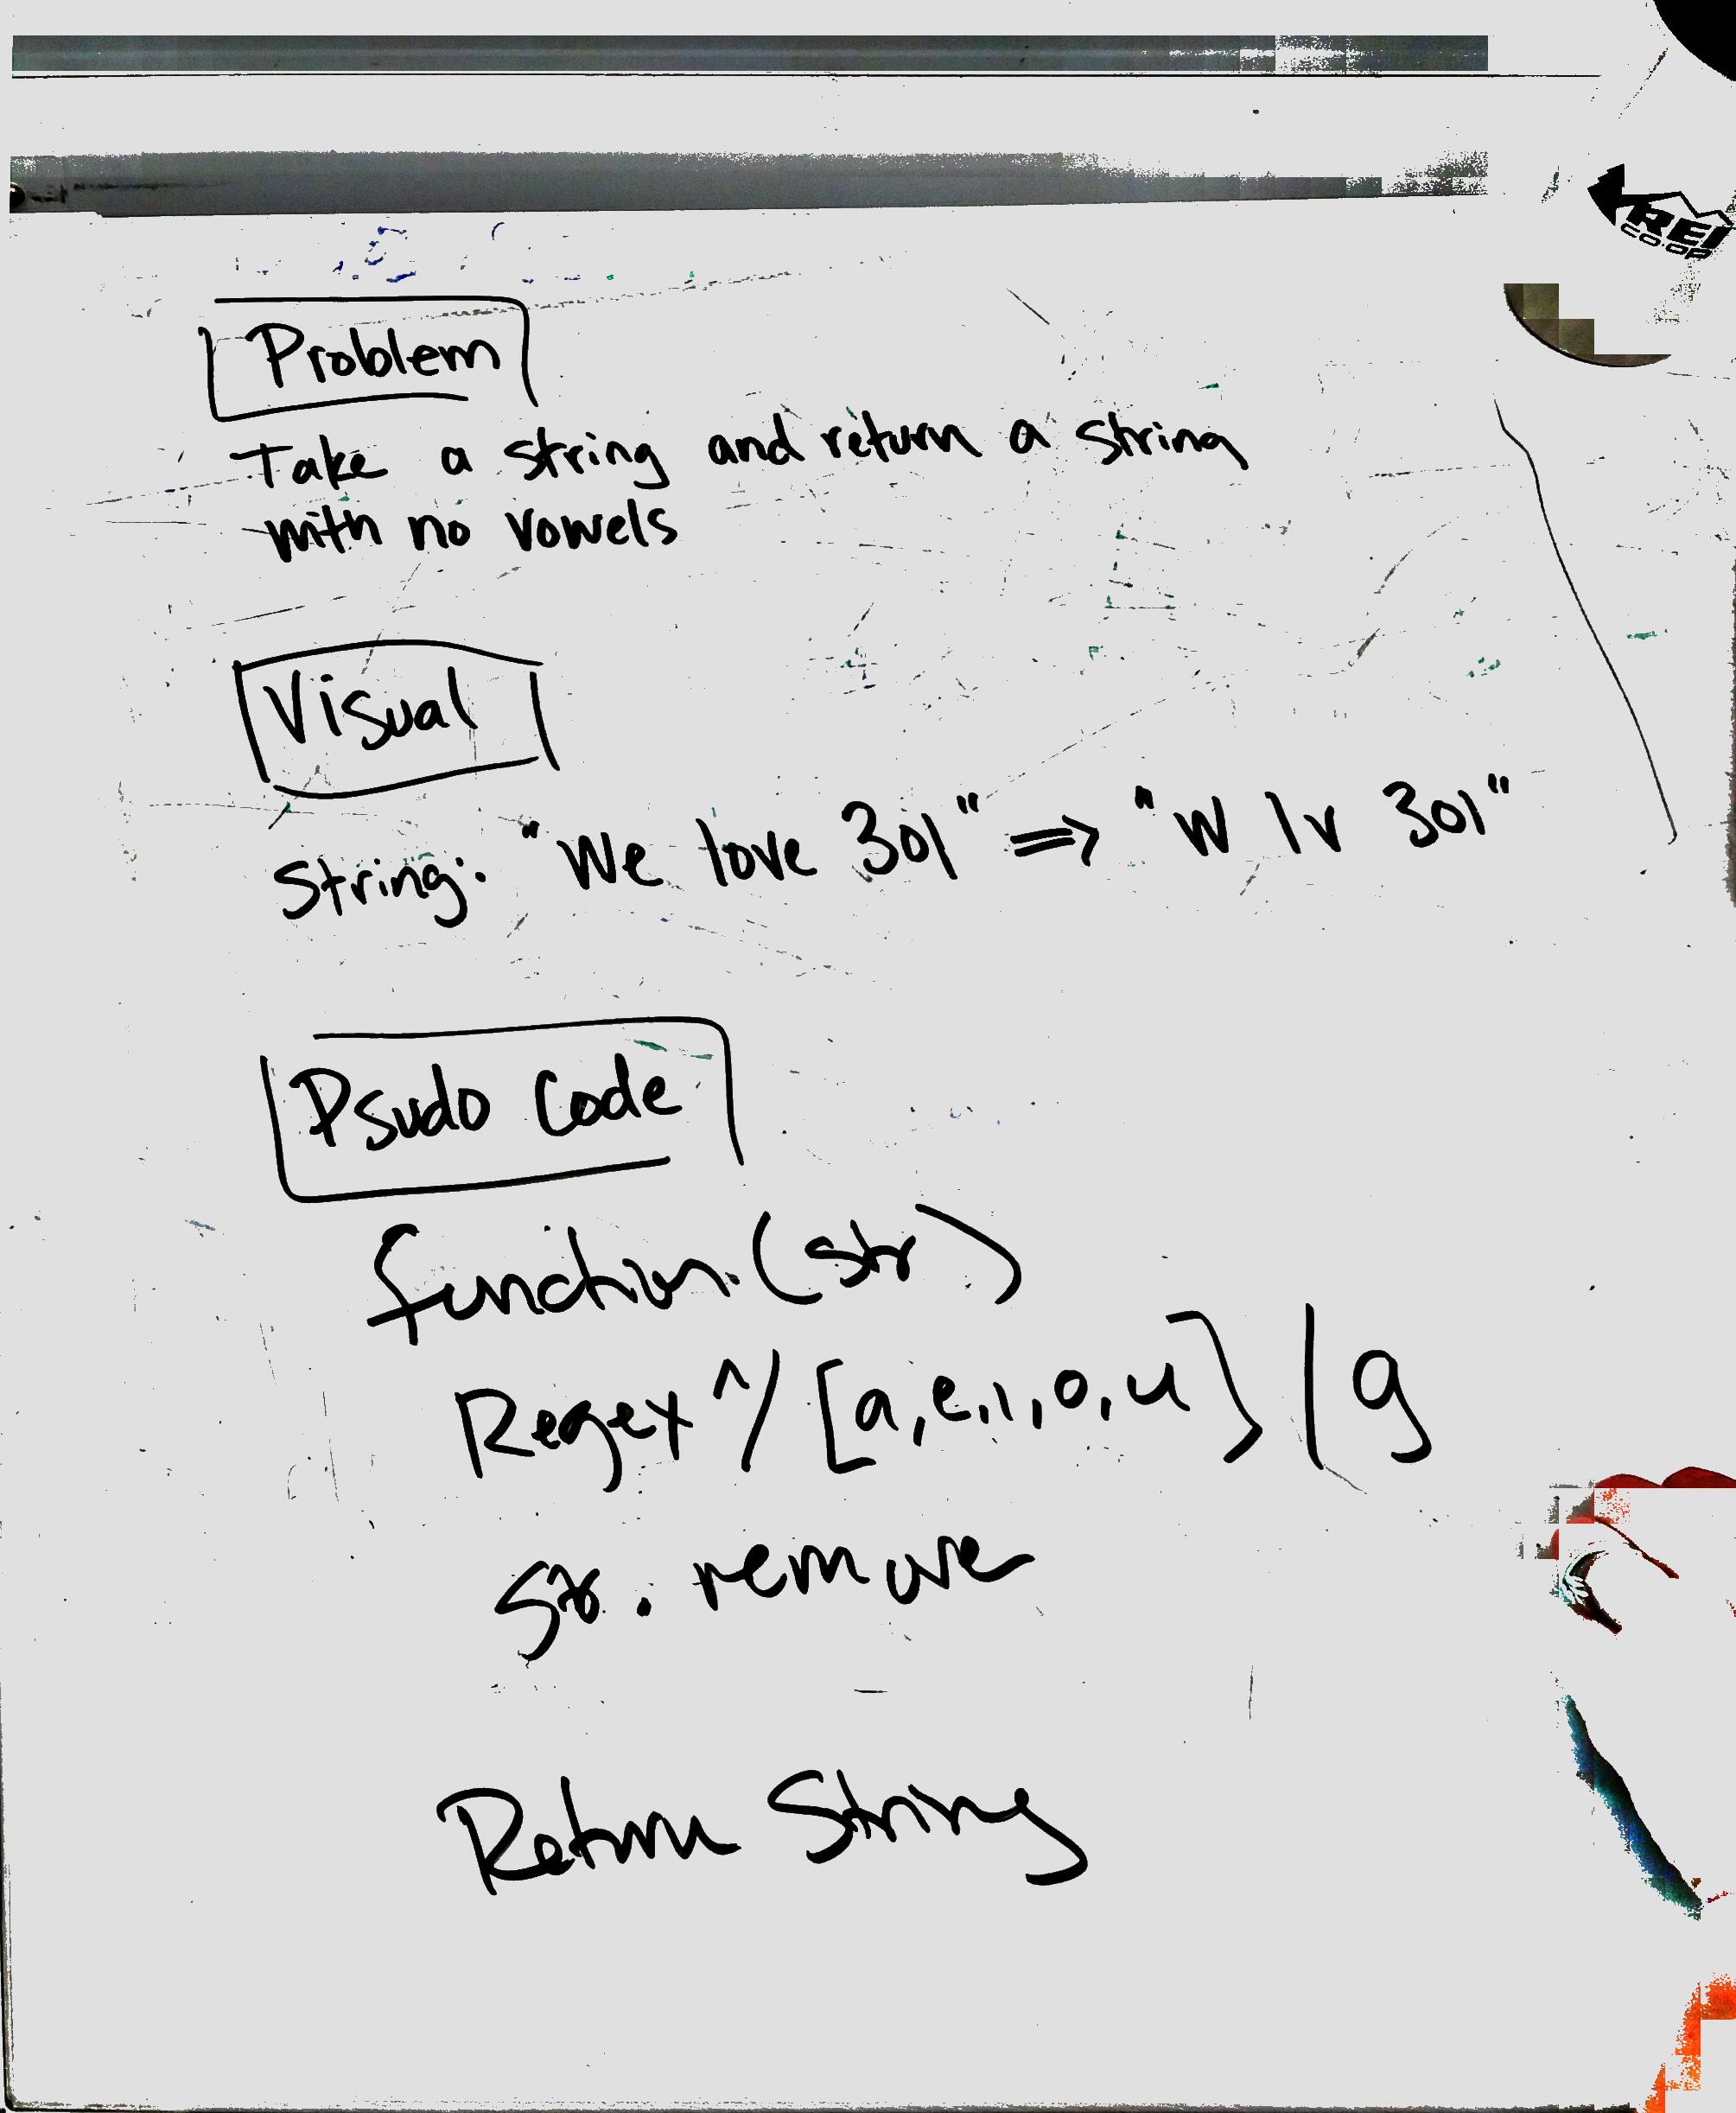 REI
CO·OP
Problem
Take a string and return a string
with no vowels
Visual
String: "We love 301" => "W lv 301"
Psudo Code
function(str)
Regex ^/[a,e,i,o,u]/g
str. remove
Return String